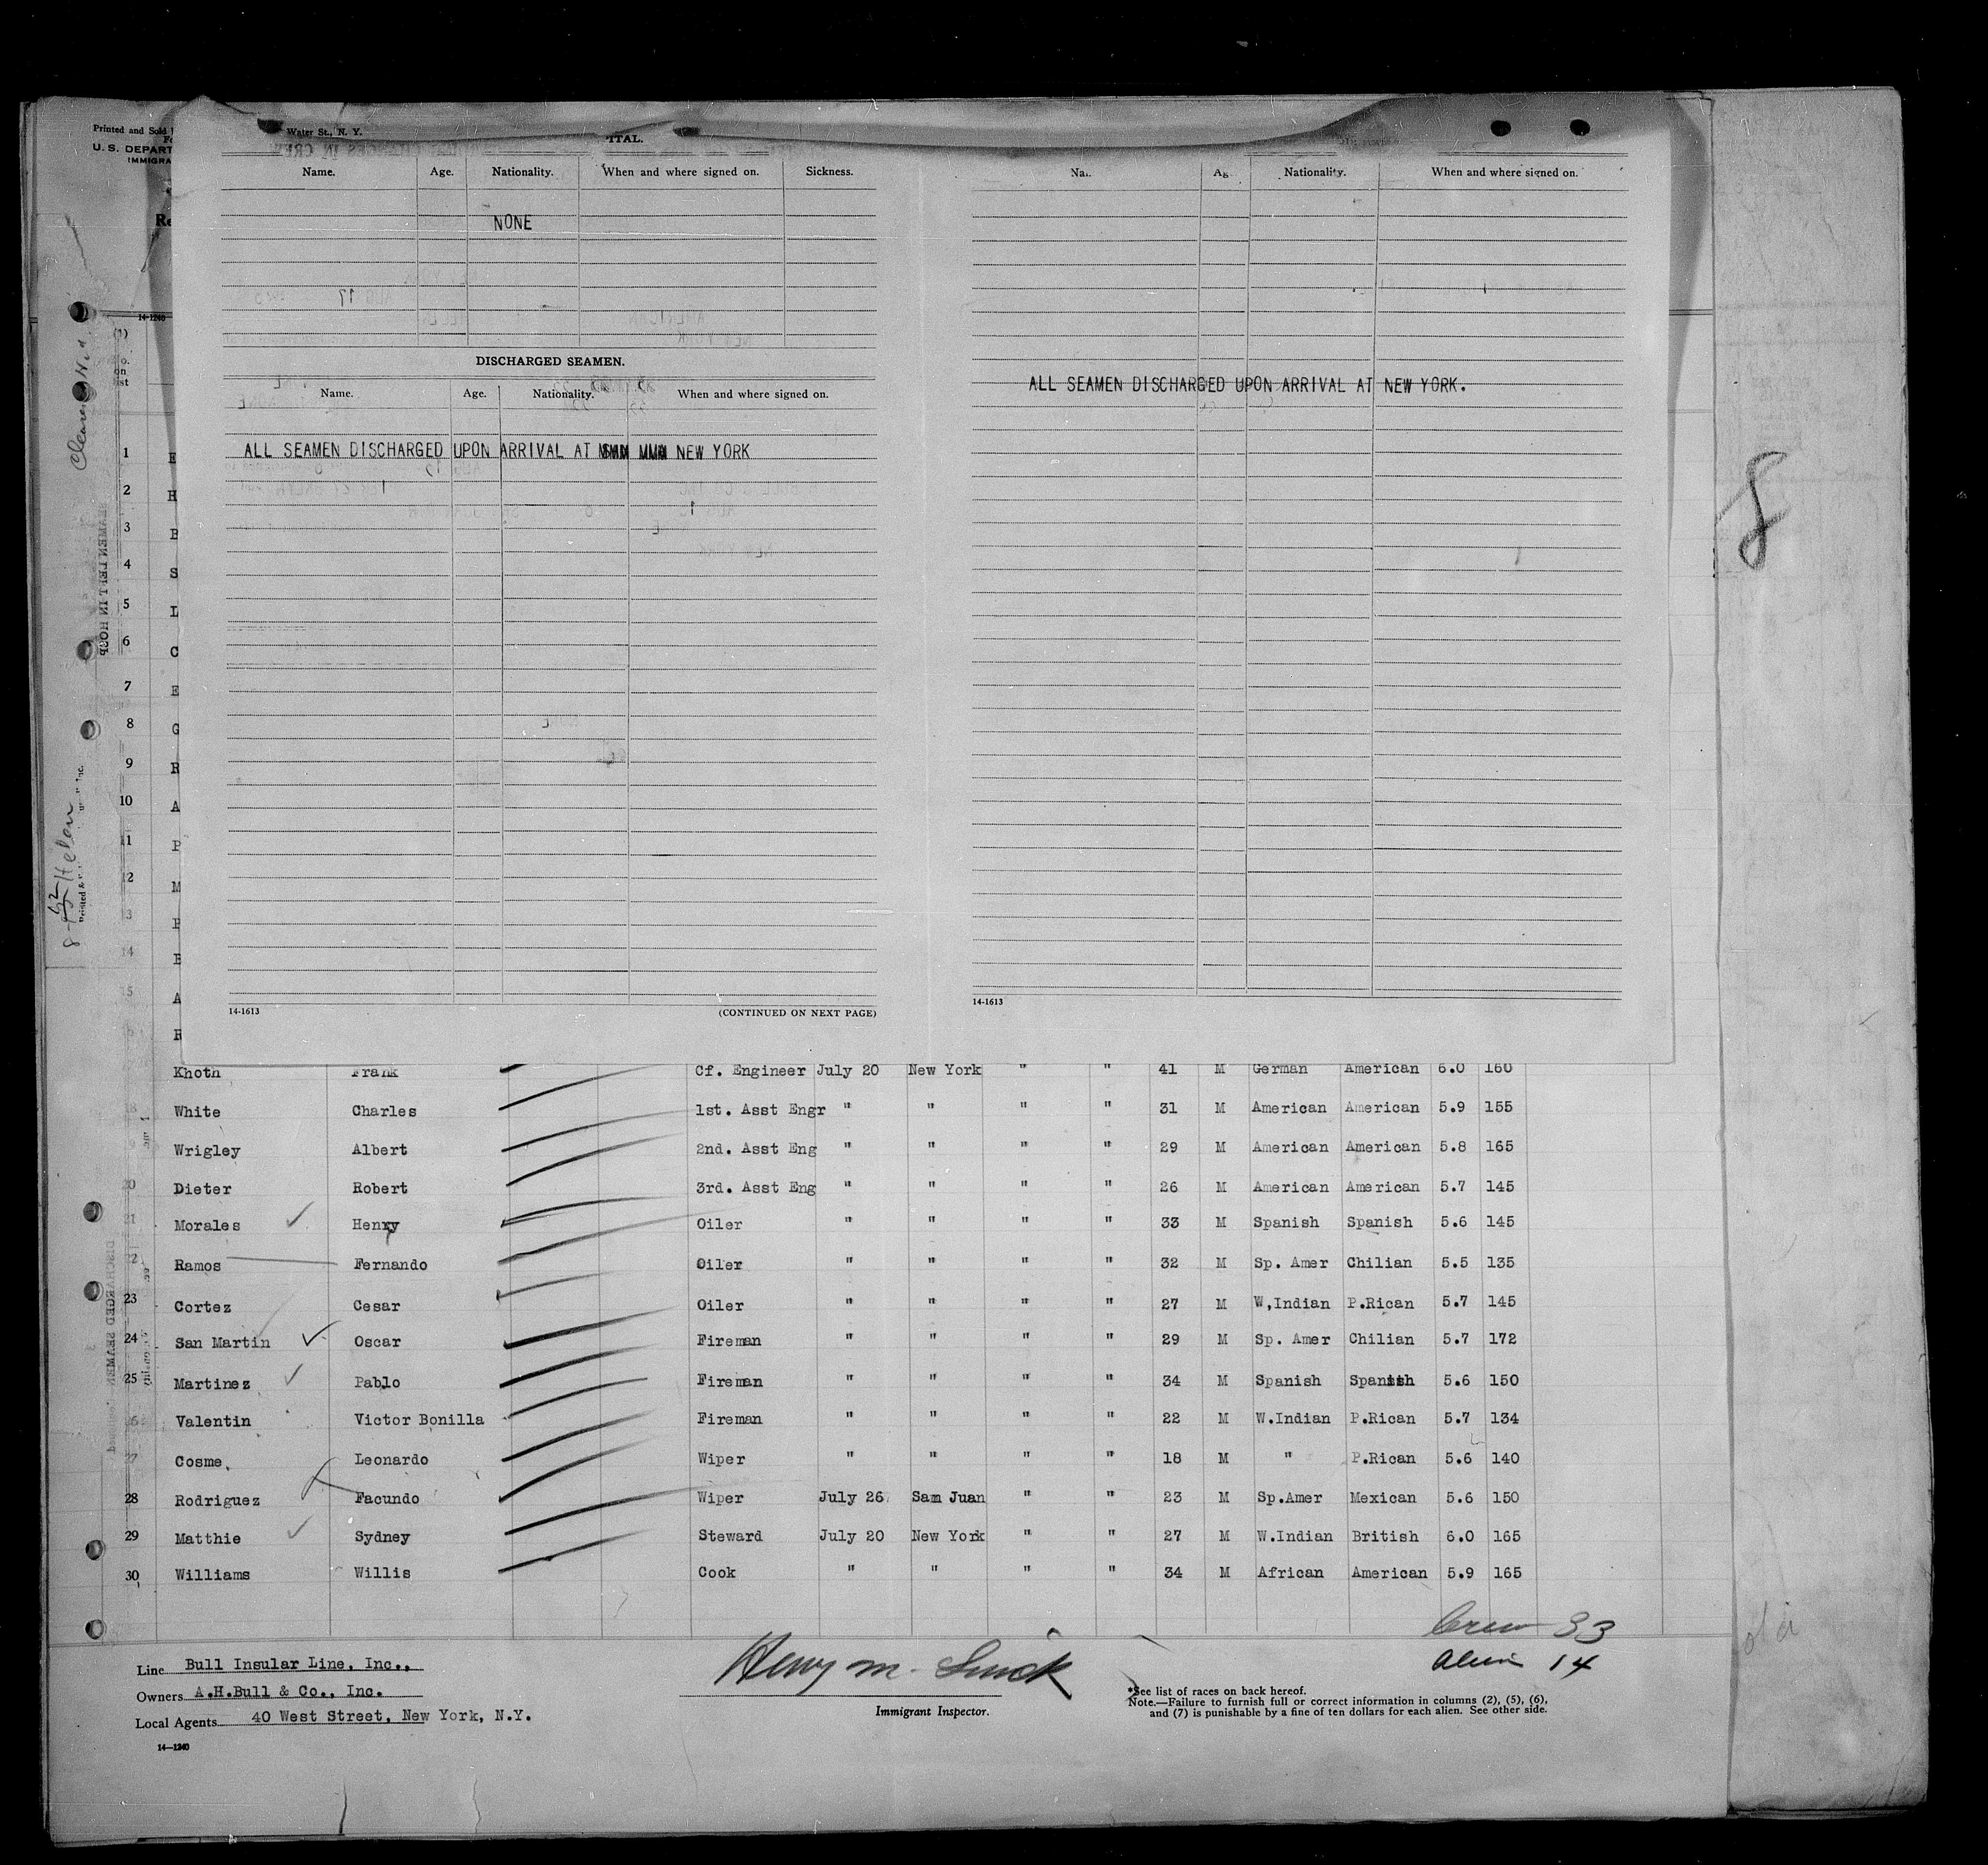 Printed and Sold
U. S. DEPART
IMMIGRA
Water St., N. Y.
Name. Age. Nationality. When and where signed on. Sickness.
NONE
DISCHARGED SEAMEN.
Name. Age. Nationality. When and where signed on.
ALL SEAMEN DISCHARGED UPON ARRIVAL AT NEW YORK
14-1613 (CONTINUED ON NEXT PAGE)
Nationality. When and where signed on.
ALL SEAMEN DISCHARGED UPON ARRIVAL AT NEW YORK.
14-1613
8
14-1240
(1)
1 E
2 H
3 B
4 S
5 L
6 C
7 E
8 G
9 R
10 A
11 P
12 M
13
14
15 A
Helen
Khoth Frank Cf. Engineer July 20 New York " " 41 M German American 6.0 160
18 White Charles 1st. Asst Engr " " " " 31 M American American 5.9 155
Wrigley Albert 2nd. Asst Eng " " " " 29 M American American 5.8 165
20 Dieter Robert 3rd. Asst Eng " " " " 26 M American American 5.7 145
21 Morales Henry Oiler " " " " 33 M Spanish Spanish 5.6 145
22 Ramos Fernando Oiler " " " " 32 M Sp. Amer Chilian 5.5 135
23 Cortez Cesar Oiler " " " " 27 M W,Indian P.Rican 5.7 145
24 San Martin Oscar Fireman " " " " 29 M Sp. Amer Chilian 5.7 172
25 Martinez Pablo Fireman " " " " 34 M Spanish Spanish 5.6 150
26 Valentin Victor Bonilla Fireman " " " " 22 M W.Indian P.Rican 5.7 134
27 Cosme, Leonardo Wiper " " " " 18 M " P.Rican 5.6 140
28 Rodriguez Facundo Wiper July 26 Sam Juan " " 23 M Sp.Amer Mexican 5.6 150
29 Matthie Sydney Steward July 20 New York " " 27 M W.Indian British 6.0 165
30 Williams Willis Cook " " " " 34 M African American 5.9 165
Crew 33
Alien 14
Line Bull Insular Line, Inc.,
Owners A.H.Bull & Co., Inc.
Local Agents 40 West Street, New York, N.Y.
14—1240
Henry M.
Immigrant Inspector.
*See list of races on back hereof.
Note.—Failure to furnish full or correct information in columns (2), (5), (6),
and (7) is punishable by a fine of ten dollars for each alien. See other side.